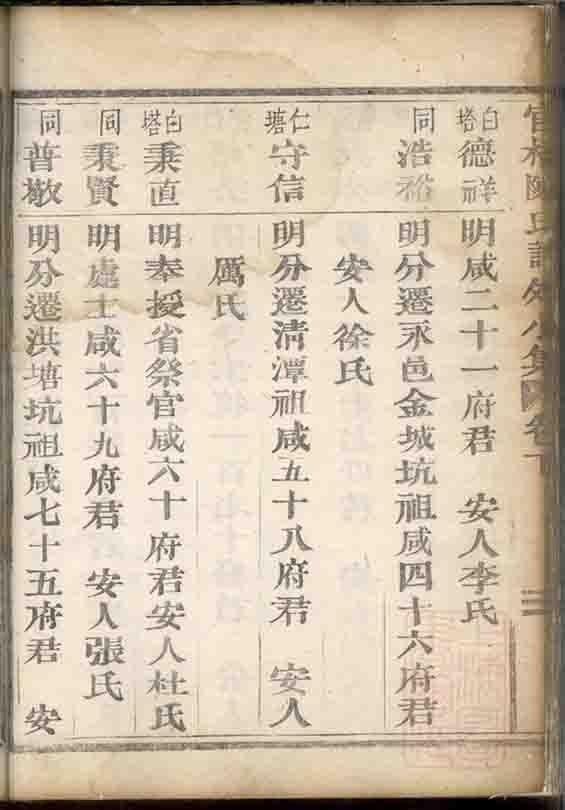 白塔 德祥 明咸二十一府君 安人李氏
同 浩裕 明分遷永邑金城坑祖咸四十六府君
安人徐氏
仁塘 守信 明分遷清潭祖咸五十八府君 安人
厲氏
白塔 秉直 明奉授省祭官咸六十府君安人杜氏
同 秉賢 明處士咸六十九府君 安人張氏
同 普敬 明分遷洪塘坑祖咸七十五府君 安